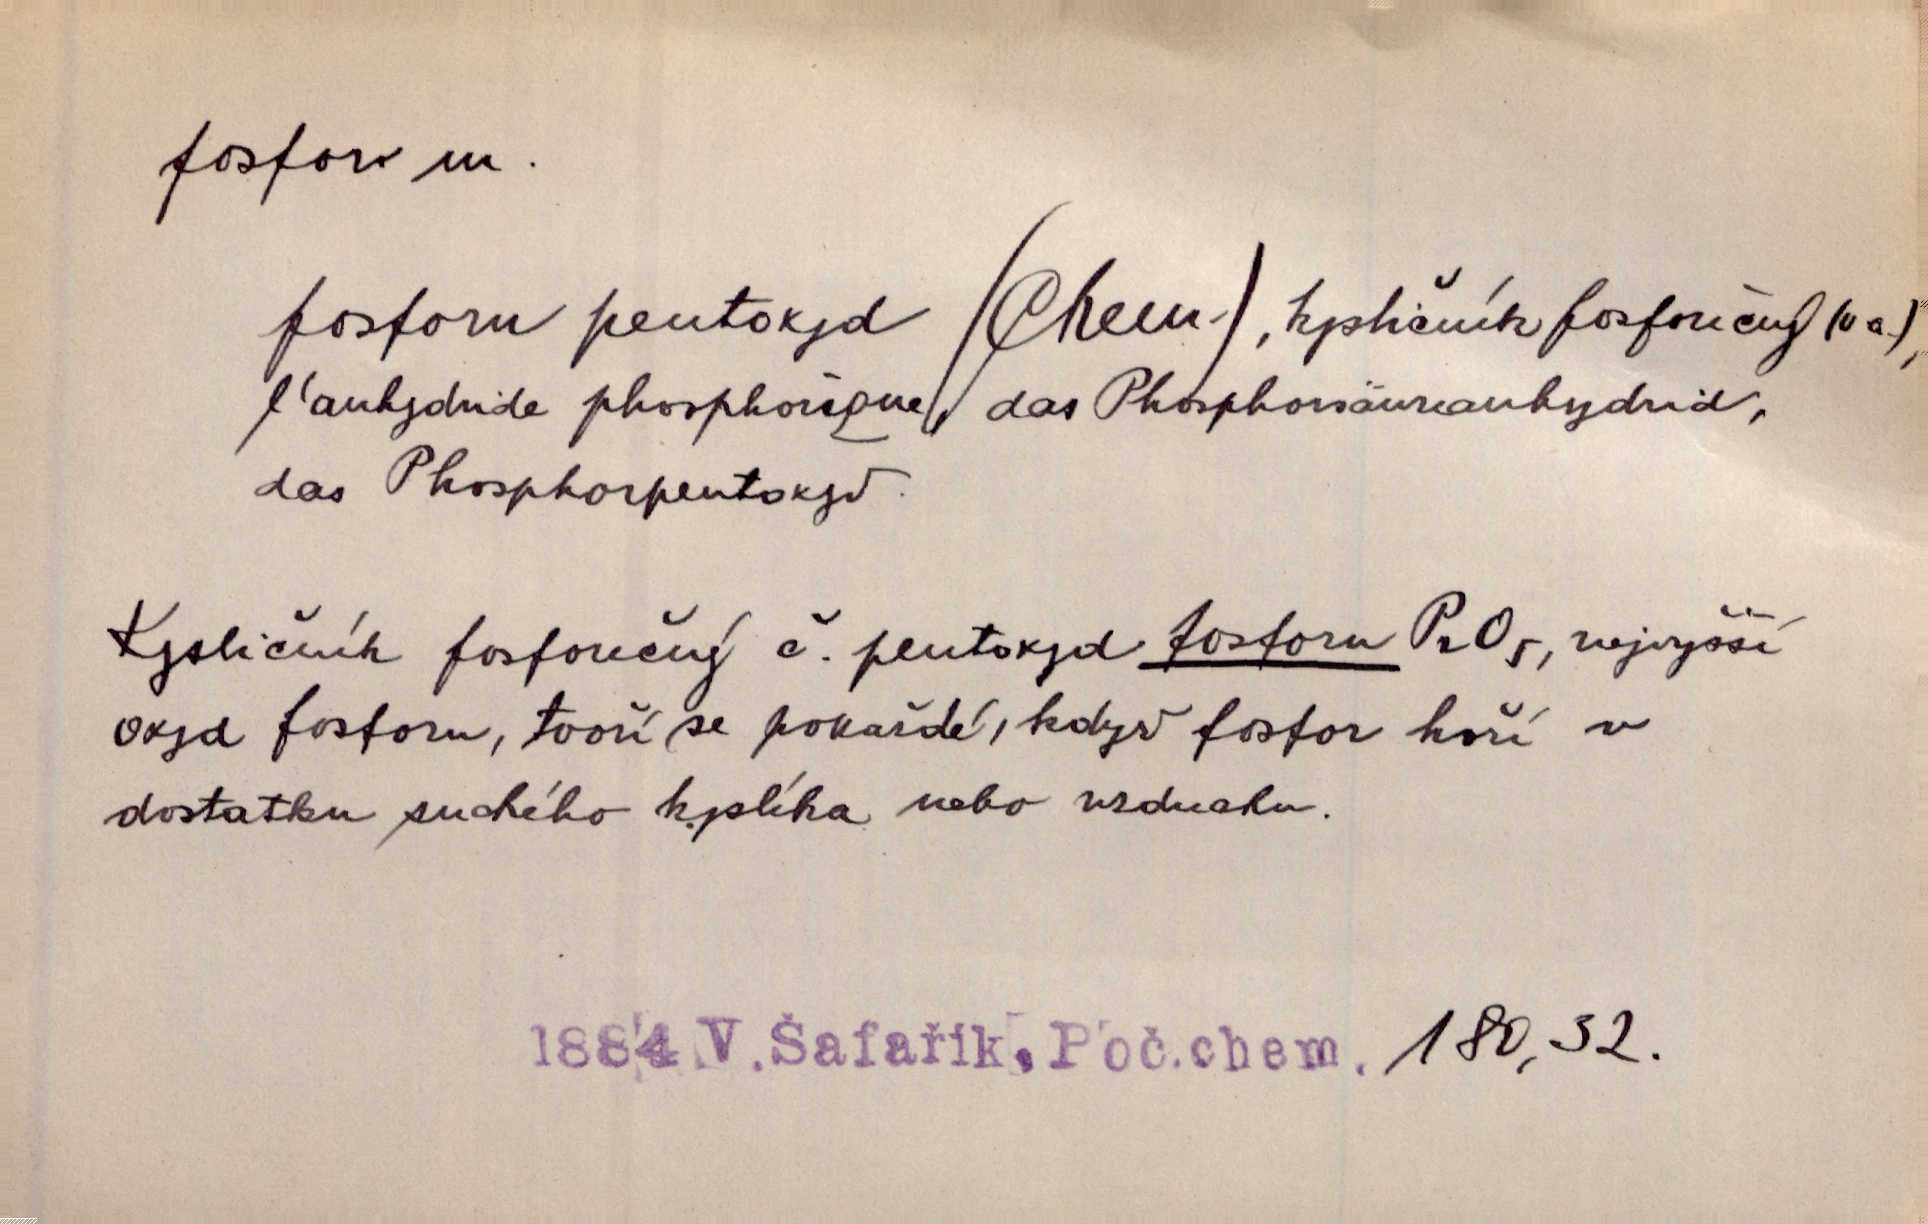 fosfor m.
fosforu pentoxyd (Chem.), kysličník fosforečný (v. a.),
l'anhydride phosphorique, das Phosphorsäureanhydrid,
das Phosphorpentoxyd.
Kysličník fosforečný č. pentoxyd fosforu P₂O₅, nejvyšší
oxyd fosforu, tvoří se pokaždé, když fosfor hoří v
dostatku suchého kyslíka nebo vzduchu.
1884 V. Šafařík. Poč.chem. 180,32.